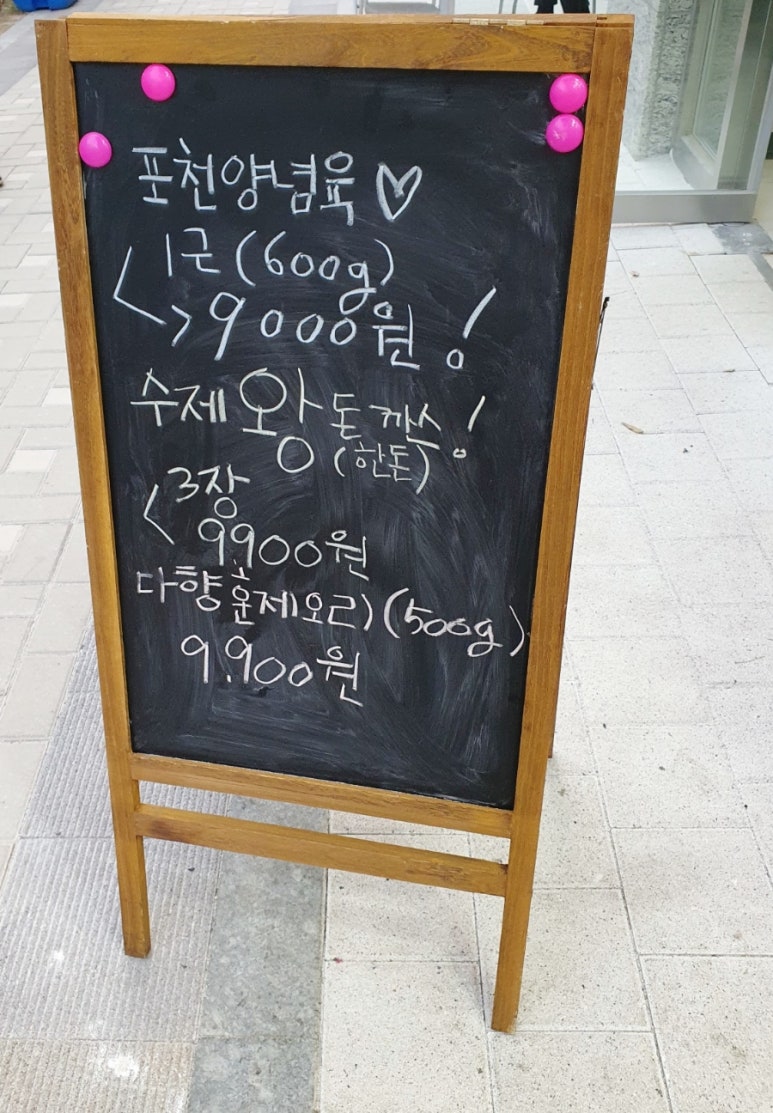 포천양념육♡
<1근(600g)
>9000원!
수제왕돈까스!
(한돈)
<3장
9.900원
다향훈제오리)(500g)
9.900원